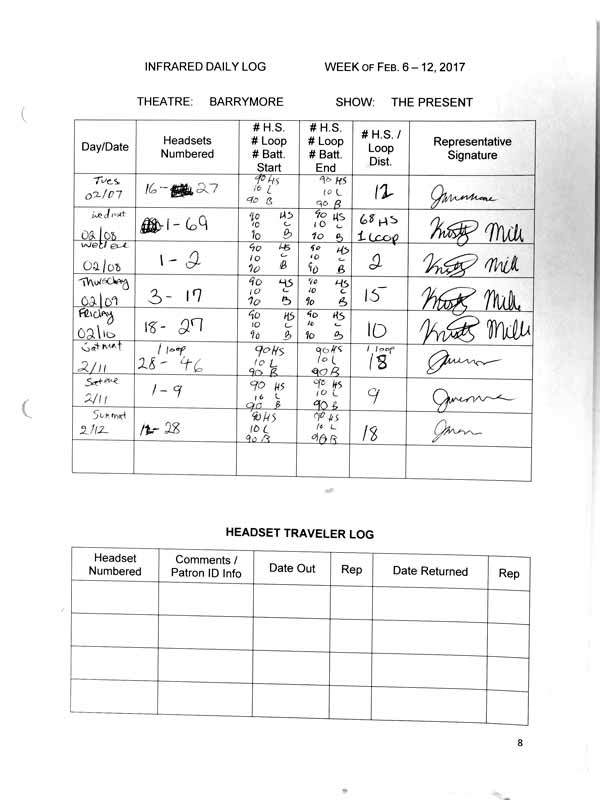 INFRARED DAILY LOG WEEK OF FEB. 6 – 12, 2017
THEATRE: BARRYMORE SHOW: THE PRESENT
Day/Date Headsets Numbered # H.S. # Loop # Batt. Start # H.S. # Loop # Batt. End # H.S. / Loop Dist. Representative Signature
Tues 02/07 16 - 27 90 HS 10 L 90 B 90 HS 10 L 90 B 12
Wed mat 02/08 1 - 69 90 HS 10 L 90 B 90 HS 10 L 90 B 68 HS 1 Loop Kristy Mill
Wed eve 02/08 1 - 2 90 HS 10 L 90 B 90 HS 10 L 90 B 2 Kristy Mill
Thursday 02/09 3 - 17 90 HS 10 L 90 B 90 HS 10 L 90 B 15 Kristy Mill
Friday 02/10 18 - 27 90 HS 10 L 90 B 90 HS 10 L 90 B 10 Kristy Mill
Sat mat 2/11 1 loop 28 - 46 90 HS 10 L 90 B 90 HS 10 L 90 B 1 loop 18
Sat eve 2/11 1 - 9 90 HS 10 L 90 B 90 HS 10 L 90 B 9
Sun mat 2/12 - 28 90 HS 10 L 90 B 90 HS 10 L 90 B 18
HEADSET TRAVELER LOG
Headset Numbered Comments / Patron ID Info Date Out Rep Date Returned Rep
8